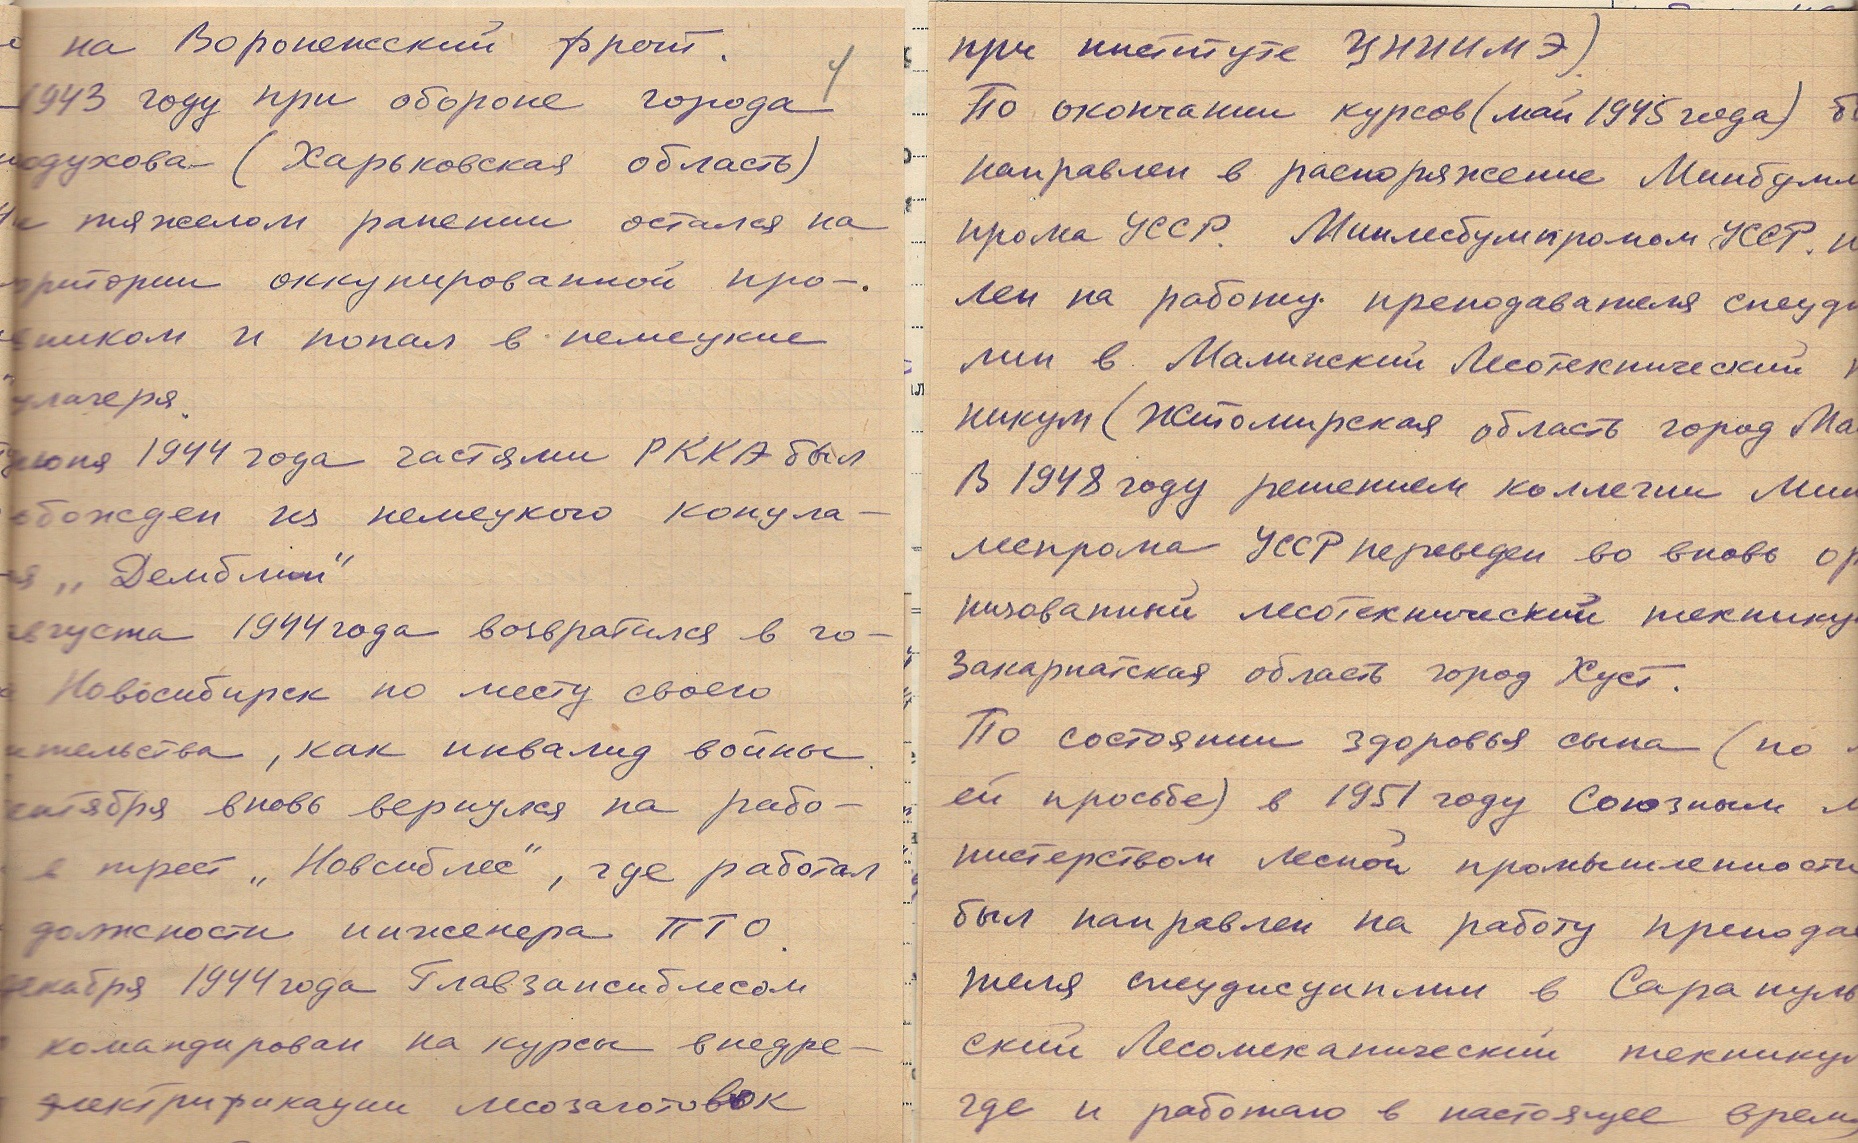 на Воронежский фронт.
1943 году при обороне города
одухова (Харьковская область)
тяжелом ранении остался на
ритории оккупированной про-
вником и попал в немецкие
лагеря.
июня 1944 года частями РККА был
обожден из немецкого концла-
я „Демблин"
августа 1944 года возвратился в го-
Новосибирск по месту своего
ительства, как инвалид войны.
ентября вновь вернулся на рабо-
в трест „Новсиблес", где работал
должности инженера ПТО.
декабря 1944 года Главзапсиблесом
командирован на курсы внедре-
электрификации лесозаготовок
4
при институте ЦНИИМЭ)
По окончании курсов (май 1945 года) б
направлен в распоряжение Минбумл
прома УССР. Минлесбумпромом УССР. н
лен на работу преподавателя спецди
лин в Малинский Лесотехнический
никум (Житомирская область город Ма
В 1948 году решением коллегии Мин
леспрома УССР переведен во вновь ор
низованный лесотехнический технику
Закарпатская область город Хуст.
По состоянии здоровья сына (по м
ей просьбе) в 1951 году Союзным м
нистерством Лесной промышленности
был направлен на работу препода
теля спецдисциплин в Сарапуль
ский Лесомеханический технику
где и работаю в настоящее врем